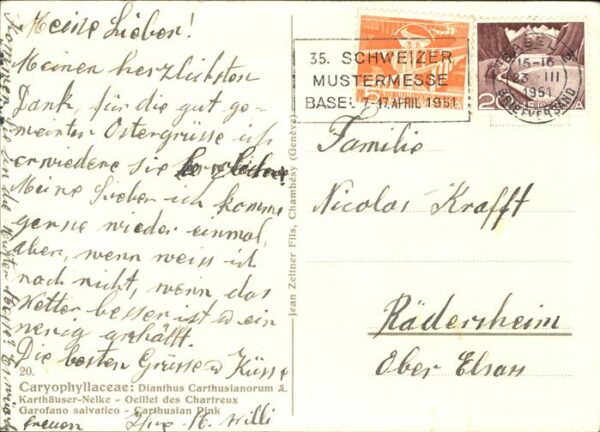 Meine Lieben!
Meinen herzlichsten
Dank, für die gut ge-
meinten Ostergrüsse ich
erwiedere sie
Meine Lieben ich komme
gerne wieder einmal,
aber, wenn weiss ich
noch nicht, wenn das
Wetter besser ist u ein
wenig
Die besten Grüsse u Küsse
20.
Caryophyllaceae: Dianthus Carthusianorum
Karthäuser-Nelke - Oeillet des Chartreux
Garofano salvatico - Carthusian Pink
Willi
Jean Zellner Fils, Chambésy (Genève)
35. SCHWEIZER
MUSTERMESSE
BASEL 7.-17. APRIL 1951
BASEL
15-16
23 III
1951
BRIEFVERSAND
20
Familie
Nicolas Krafft
Rädersheim
Ober Elsass